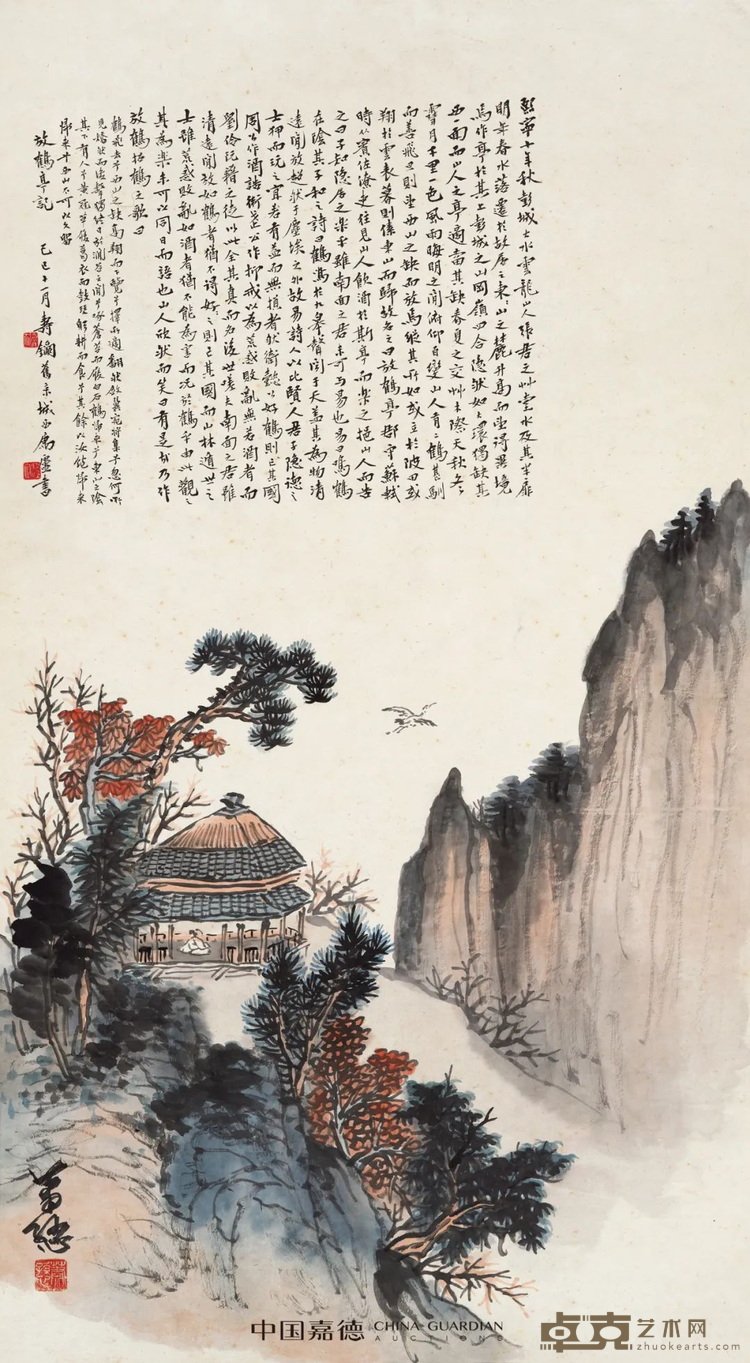 熙寧十年秋彭城大水雲龍山人張君之艸堂水及其半扉
明年春水落遷於故居之東々山之麓升高而望得異境
焉作亭於其上彭城之山岡嶺四合隱然如大環獨缺其
西一面而山人之亭適當其缺春夏之交艸木際天秋冬
雪月千里一色風雨晦明之間俯仰百變山人有二鶴甚馴
而善飛旦則望西山之缺而放焉縱其所如或立於陂田或
翔於雲表暮則傃東山而歸故名之曰放鶴亭郡守蘇軾
時從賓佐僚吏往見山人飲酒於斯亭而樂之挹山人而告
之曰子知隱居之樂乎雖南面之君未可與易也易曰鳴鶴
在陰其子和之詩曰鶴鳴於九皋聲聞于天蓋其為物清
遠閒放超然于塵埃之外故易詩人以比賢人君子隱德之
士狎而玩之宜若有益而無損者然衛懿公好鶴則亡其國
周公作酒誥衛武公作抑戒以為荒惑敗亂無若酒者而
劉伶阮籍之徒以此全其真而名後世嗟夫南面之君雖
清遠閒放如鶴者猶不得好々之則亡其國而山林遁世之
士雖荒惑敗亂如酒者猶不能為害而況於鶴乎由此觀之
其為樂未可以同日而語也山人欣然而笑曰有是哉乃作
放鶴招鶴之歌曰
鶴飛去兮西山之缺高翔而下覽兮擇所適翻然斂翼宛將集兮忽何所
見矯然而復擊獨終日於澗谷之間兮啄蒼苔而履白石鶴歸來兮東山之陰
其下有人兮黃冠草履葛衣而鼓琴躬耕而食兮其餘以汝飽歸來
歸來兮西山不可以久留
放鶴亭記 己巳十一月壽鑈舊京城西
蕭愻
中国嘉德 CHINA GUARDIAN
AUCTIONS
卓克艺术网
zhuokearts.com